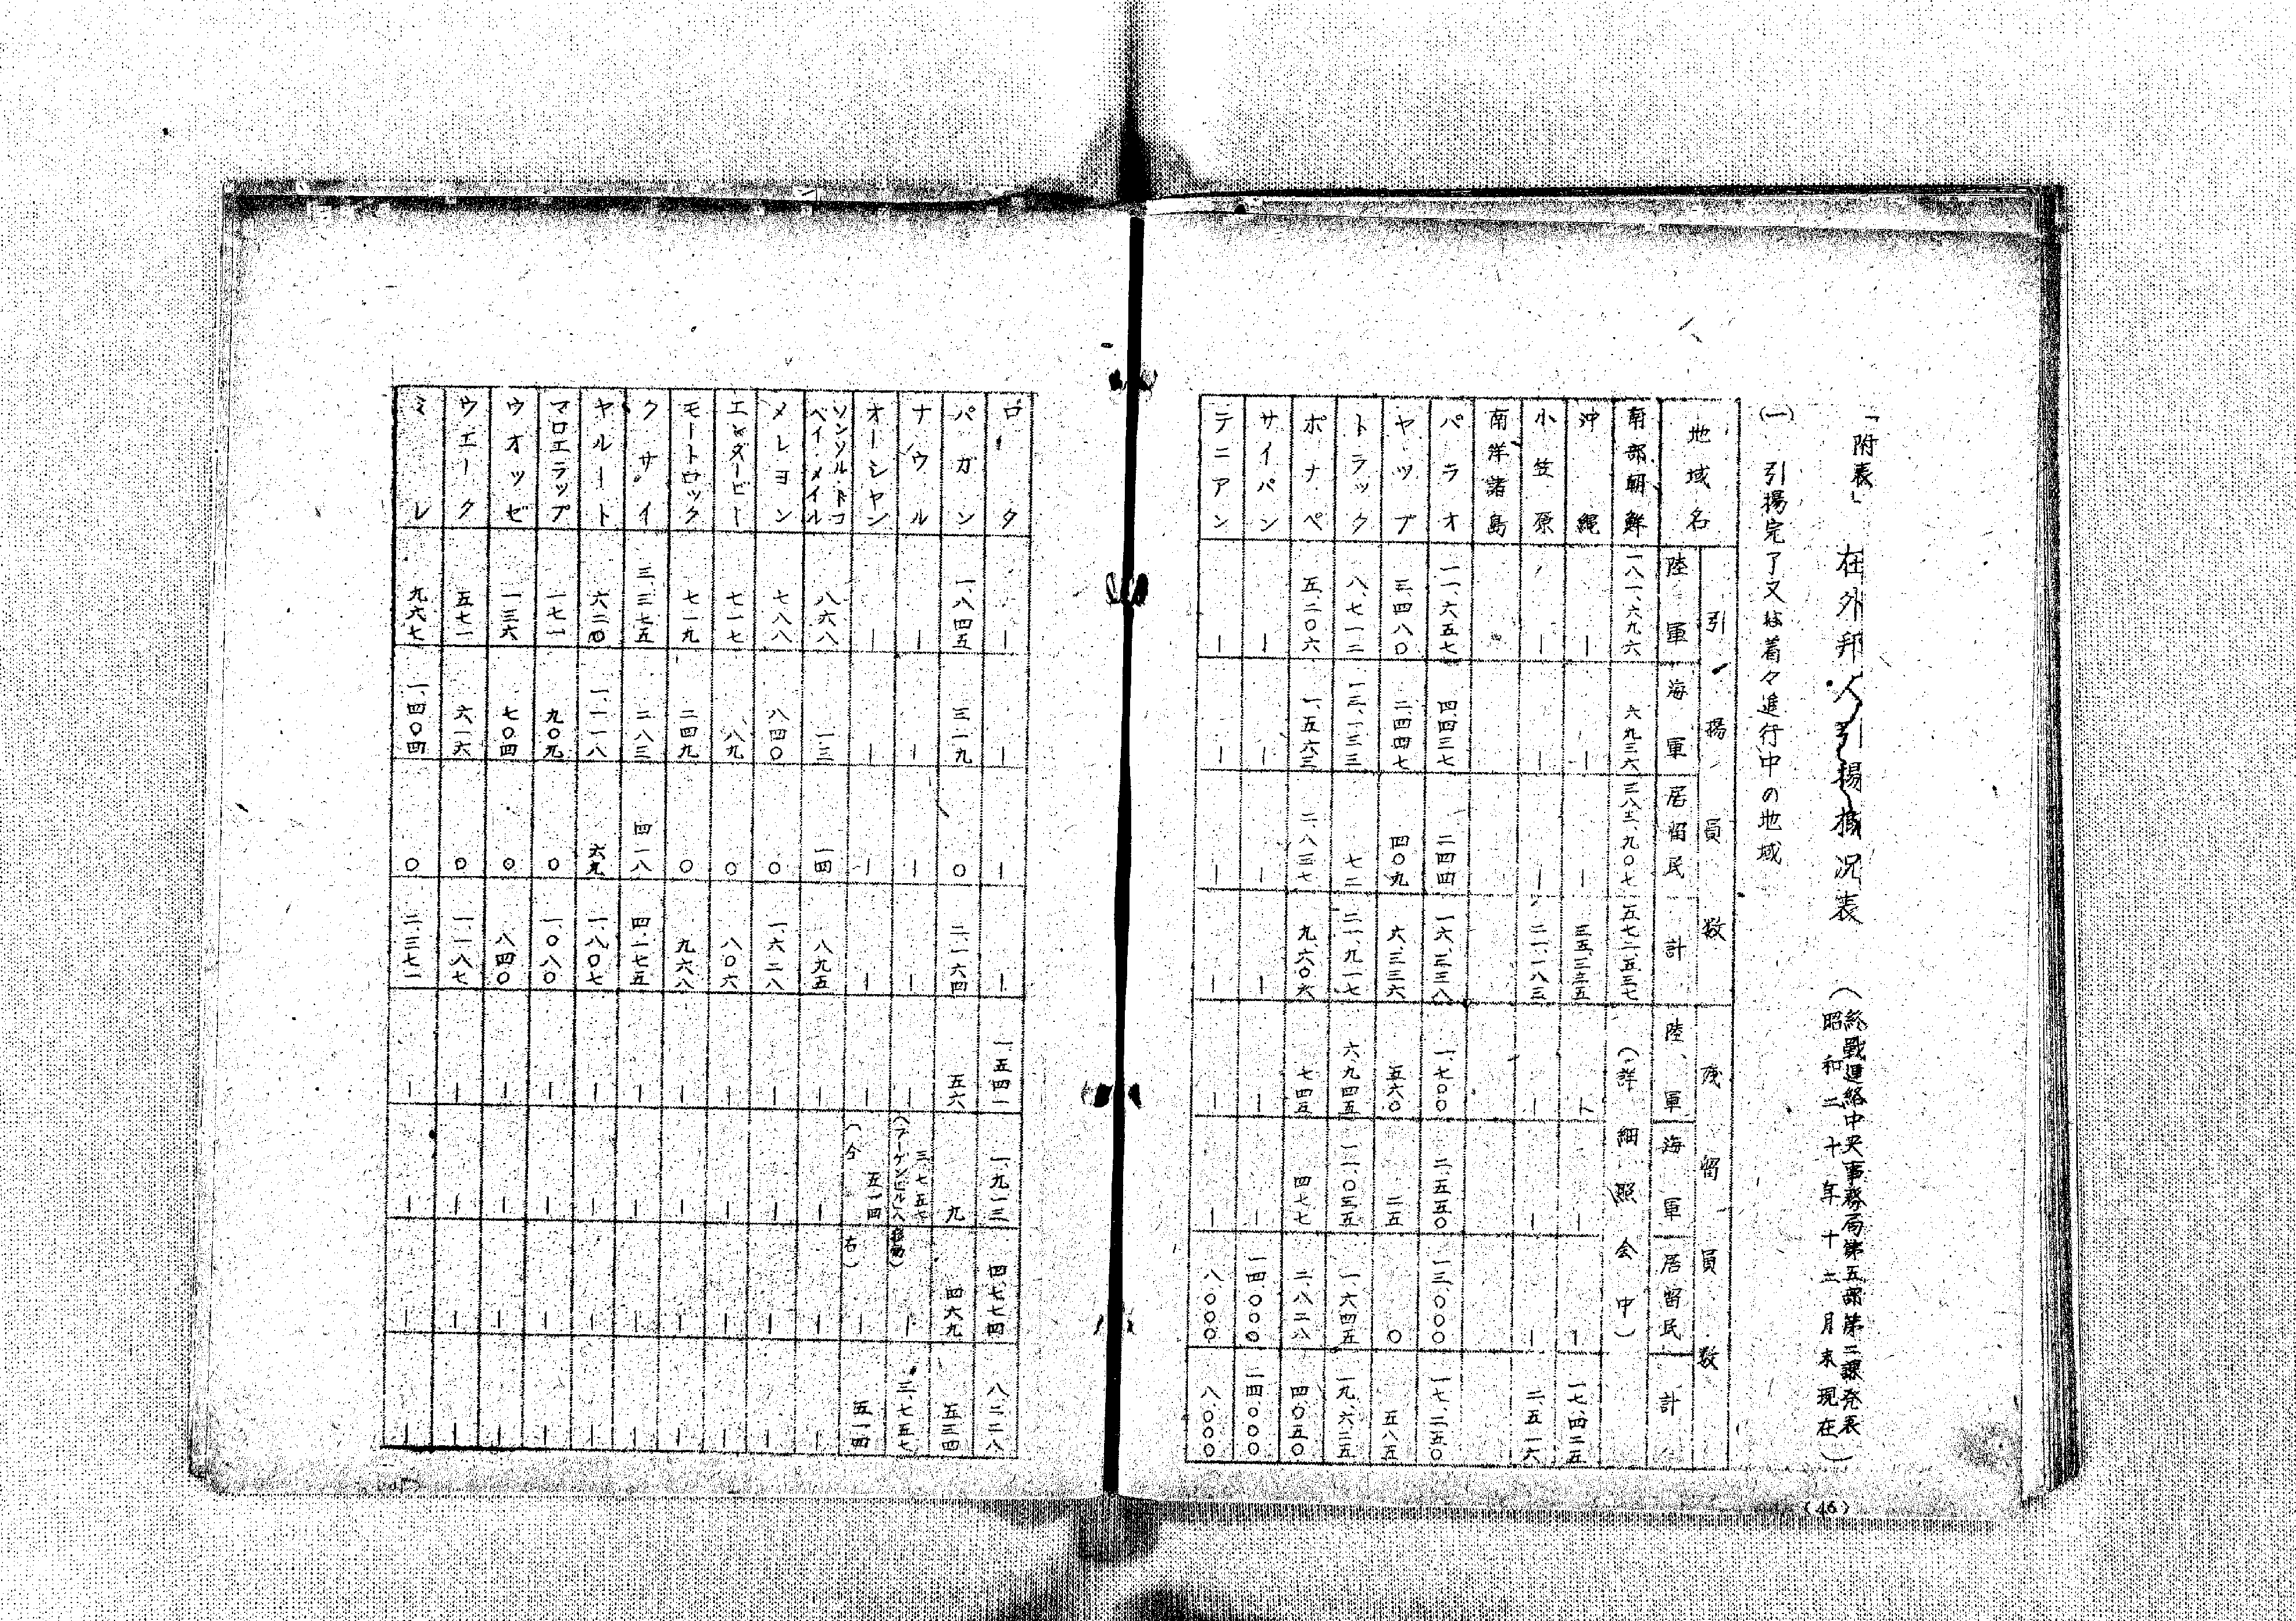 「附表」 在外邦人引揚概況表 (終戰連絡中央事務局第五部第二課発表
昭和二十年十二月末現在)
(一) 引揚完了又は着々進行中の地域
地域名 引揚員数 残留員数
陸軍 海軍 居留民 計 陸軍 海軍 居留民 計
南部朝鮮 一八一、六九六 六九三六 三八三、九〇七 五七二、五三七 (詳細照会中)
沖縄 ― ― ― 三五、三三五 ― ― ― 一七四二五
小笠原 ― ― ― 二一、一八三 ― ― ― 二、五一六
南洋諸島
パラオ 一一、六五七 四四三七 二四四 一六、三三八 一、七〇〇 二、五五〇 一三、〇〇〇 一七、二五〇
ヤップ 三四八〇 二、四四七 四〇九 六、三三六 五六〇 二五 〇 五八五
トラック 八、七一二 一三、一三三 七二 二一、九一七 六、九四五 一一、〇三五 一、六四五 一九、六二五
ポナペ 五、二〇六 一、五六三 二、八三七 九、六〇六 七四五 四七七 二、八二八 四〇五〇
サイパン ― ― ― ― ― ― 一四、〇〇〇 一四、〇〇〇
テニアン ― ― ― ― ― ― 八、〇〇〇 八、〇〇〇
ロタ ― ― ― ― 一、五四一 一、九一三 四、七七四 八、二二八
パガン 一、八四五 三一九 〇 二、一六四 五六 九 四六九 五三四
ナウル ― ― ― ― ― 三、七五七 (ブーゲンビルへ移動) ― 三、七五七
オーシャン ― ― ― ― ― 五一四 (仝右) ― 五一四
ソンソル・トコベイ・メイル 八六八 一三 一四 八九五 ― ― ― ―
メレヨン 七八八 八四〇 〇 一、六二八 ― ― ― ―
エンダービー 七一七 八九 〇 八〇六 ― ― ― ―
モートロック 七一九 二四九 〇 九六八 ― ― ― ―
クサイ 三、三七五 二八三 四一八 四、一七五 ― ― ― ―
ヤルート 六二〇 一、一一八 六九 一、八〇七 ― ― ― ―
マロエラップ 一七一 九〇九 〇 一、〇八〇 ― ― ― ―
ウオッゼ 一三六 七〇四 〇 八四〇 ― ― ― ―
ウエーク 五七一 六一六 〇 一、一八七 ― ― ― ―
ミレ 九六七 一、四〇四 〇 二、三七一 ― ― ― ―
(46)